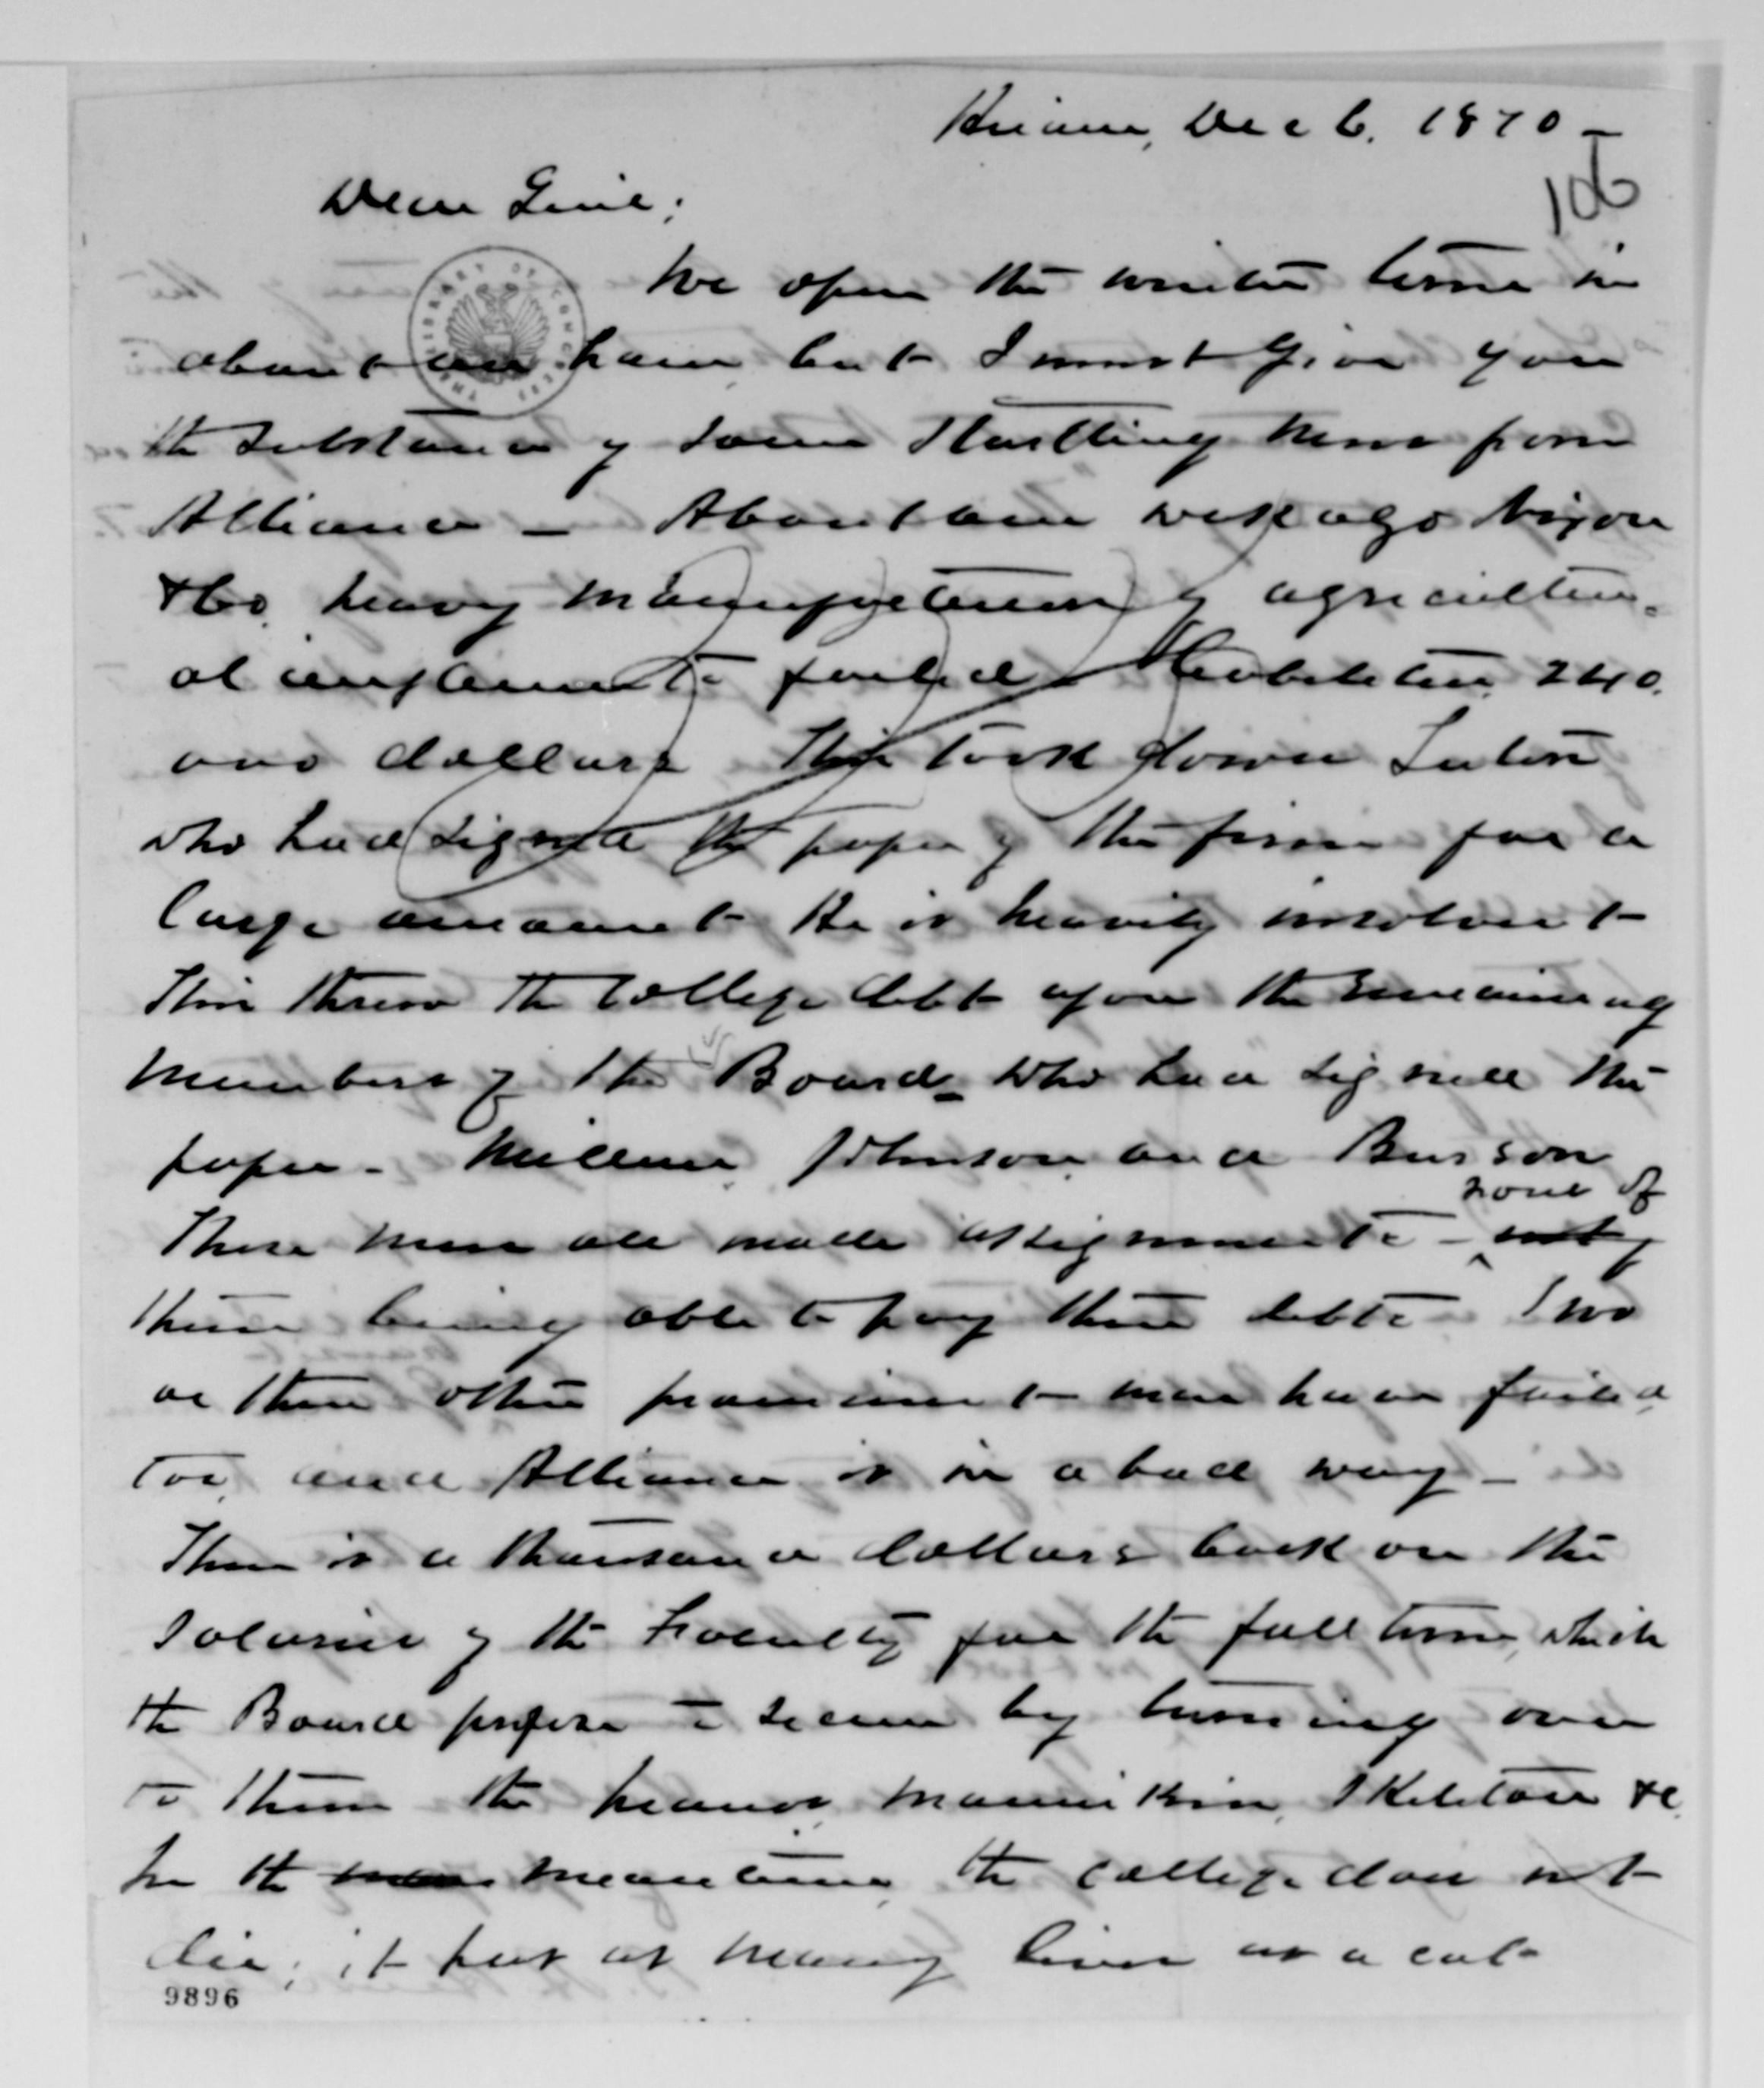 Hiram, Dec 6. 1870 –
106
Dear Gen'l:
We open the winter term in
about an hour, but I must give you
the substance of some startling news from
Alliance – About one week ago Nixon
& Co. heavy manufacturers of agricultur-
al implements failed. Liabilities 240.
000 dollars This took down
who had signed the paper of the firm for a
large amount He is heavily insolvent
This threw the College debt upon the remaining
members of the Board who had signed the
paper – Miller, Johnson and Burson
none of
These men all made assignments – not of
them being able to pay their debts – Two
or three other prominent men have failed
too, and Alliance is in a bad way –
There is a thousand dollars back on the
salaries of the Faculty for the fall term, which
the Board propose to secure by turning over
to them the pianos, mannikin, skeleton &c.
In the meantime, the college does not
die; it has as many lives as a cat
9896
LIBRARY OF CONGRESS